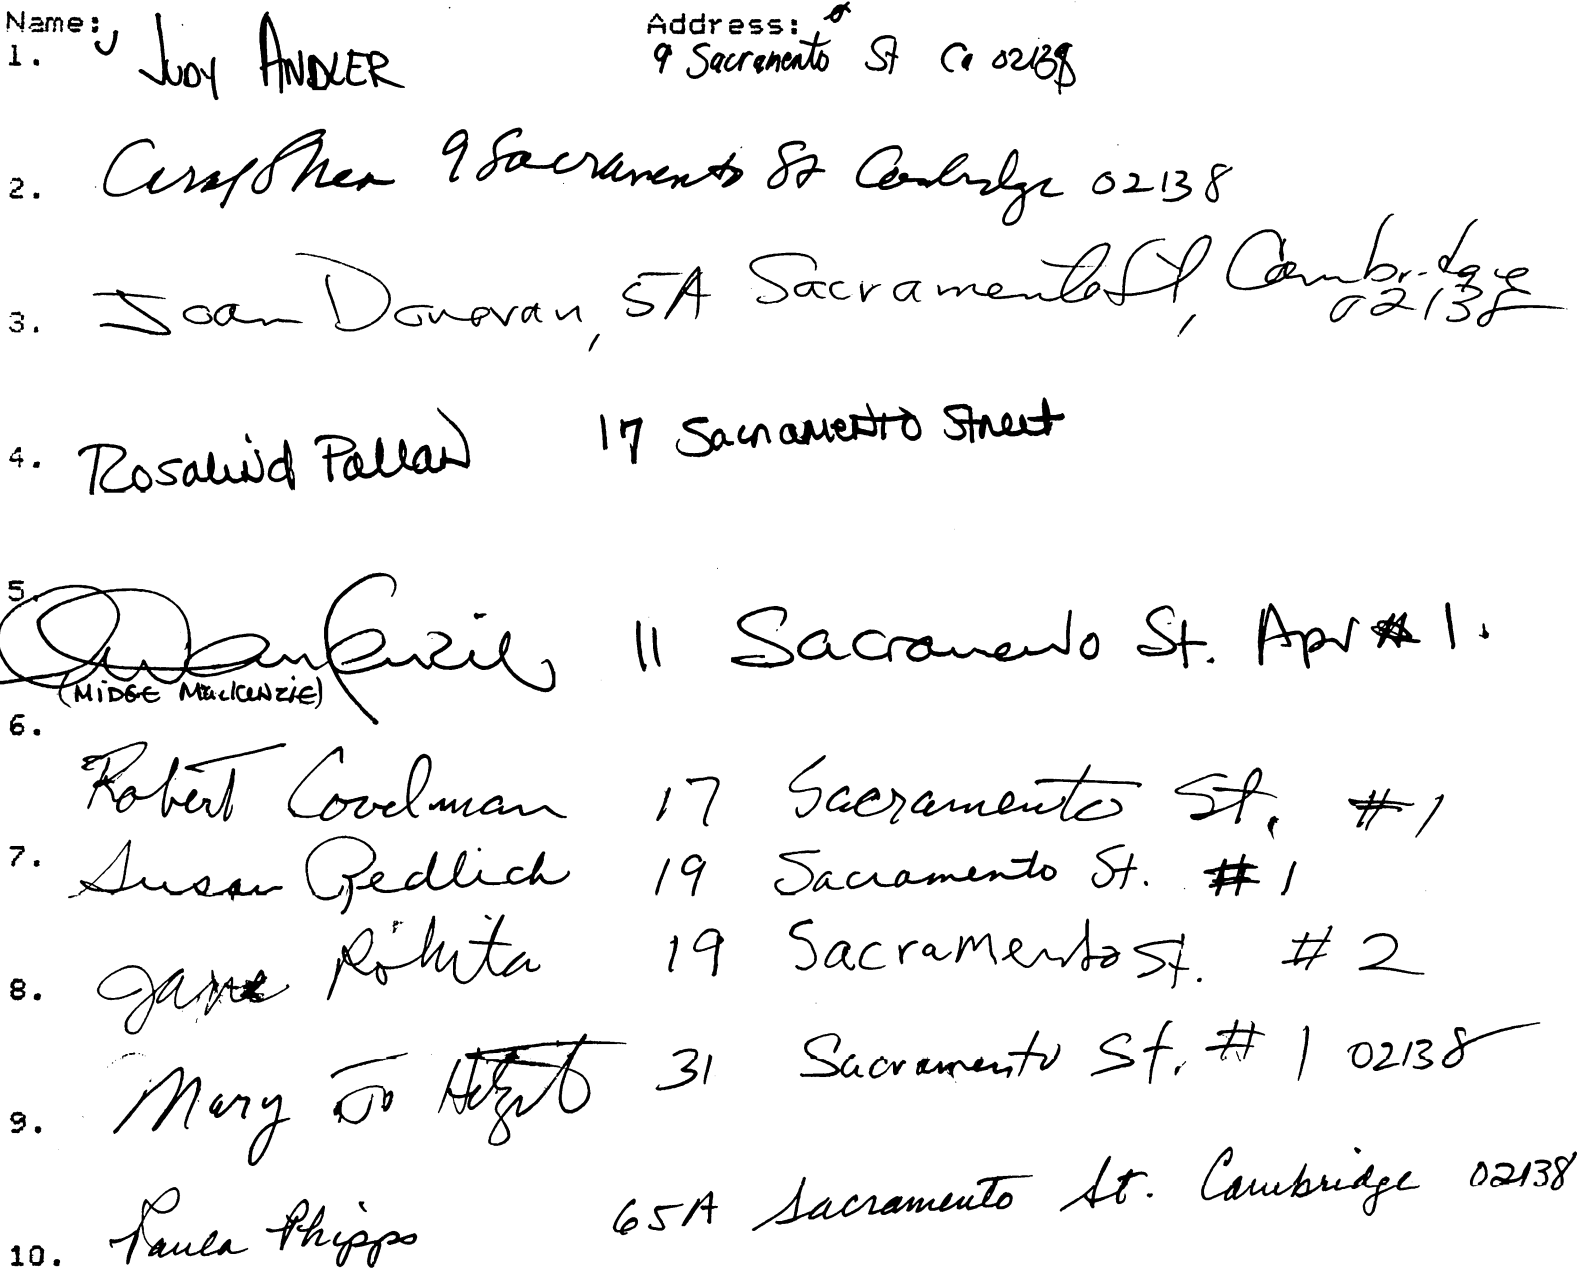 Name: Address:
1. Judy ANDLER 9 Sacramento St Ca 02138
2. Shea 9 Sacramento St Cambridge 02138
3. Joan Donovan, 5A Sacramento St, Cambridge
02138
4. Rosalind Pollan 17 Sacramento Street
5. MacKenzie 11 Sacramento St. Apt # 1.
(MIDGE MacKENZIE)
6. Robert Goodman 17 Sacramento St. #1
7. Susan Redlich 19 Sacramento St. #1
8. Jane Rokita 19 Sacramento St. #2
9. Mary Jo 31 Sacramento St. #1 02138
10. Paula Phipps 65A Sacramento St. Cambridge 02138